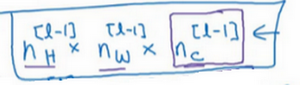 n_H^[l-1] × n_W^[l-1] × n_c^[l-1] ←